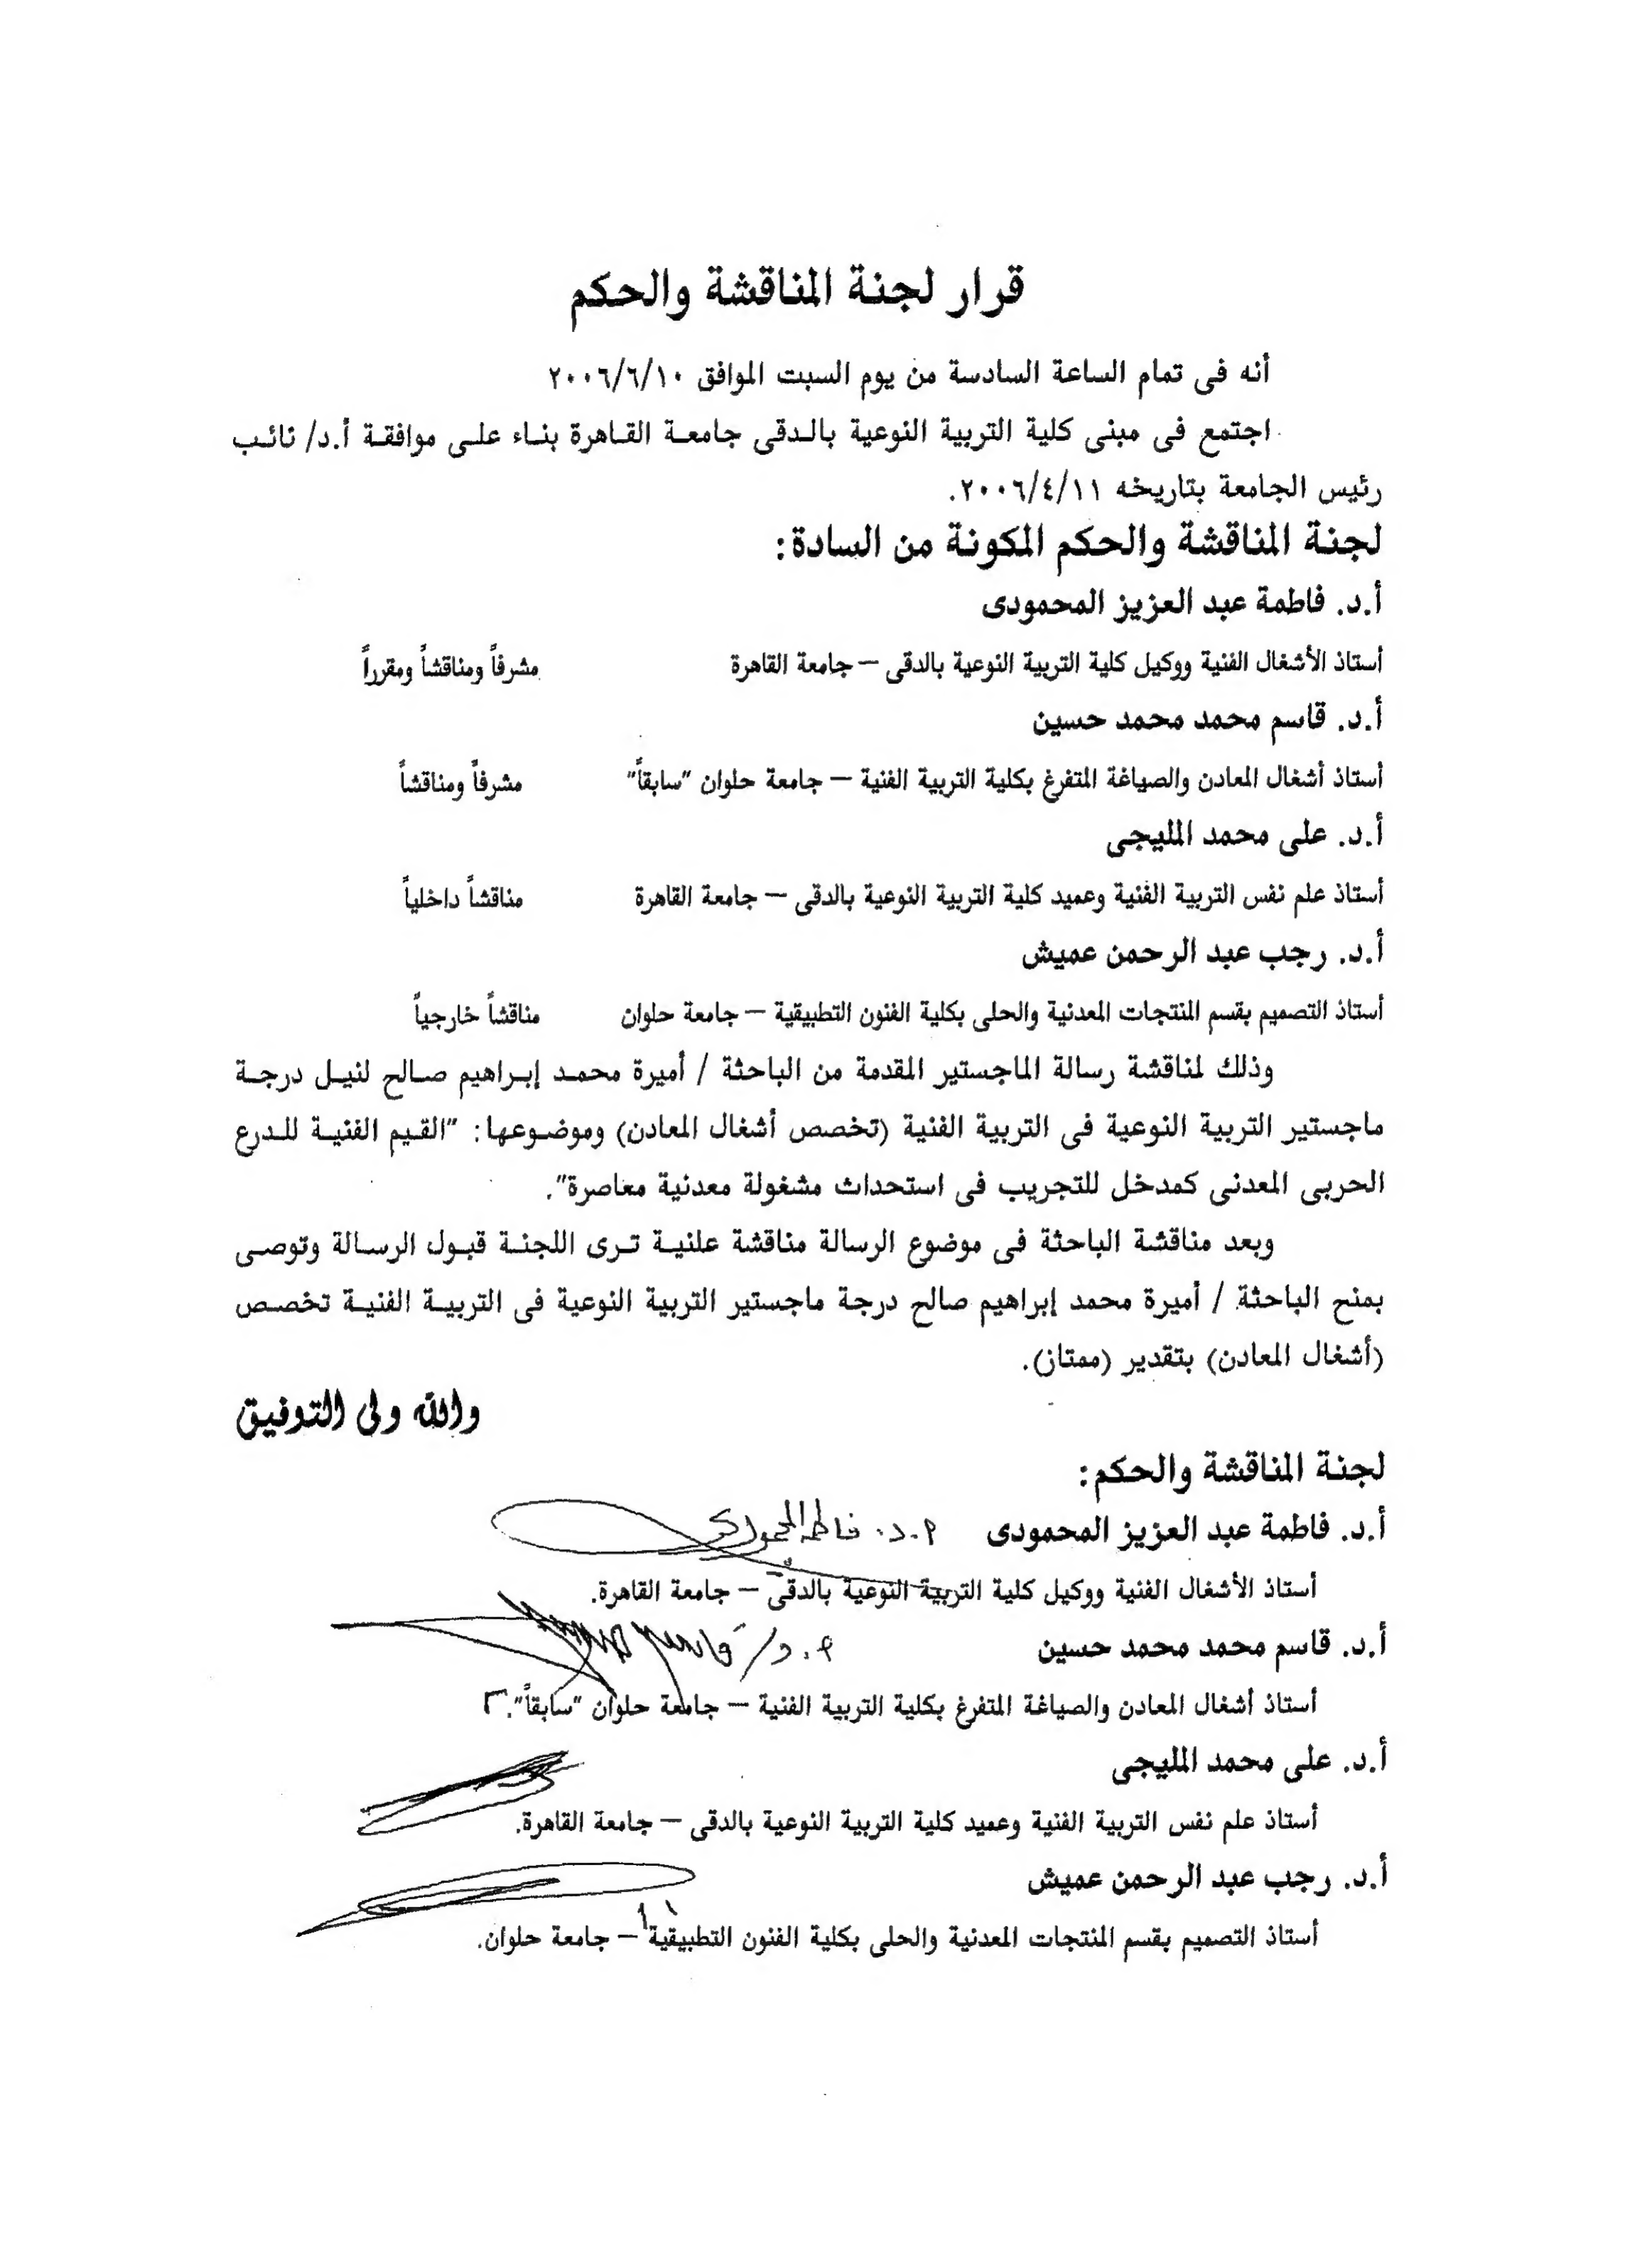 قرار لجنة المناقشة والحكم
أنه فى تمام الساعة السادسة من يوم السبت الموافق ٢٠٠٦/٦/١٠
اجتمع فى مبنى كلية التربية النوعية بالدقى جامعة القاهرة بناء على موافقة أ.د/ نائب
رئيس الجامعة بتاريخه ٢٠٠٦/٤/١١.
لجنة المناقشة والحكم المكونة من السادة:
أ.د. فاطمة عبد العزيز المحمودى
أستاذ الأشغال الفنية ووكيل كلية التربية النوعية بالدقى – جامعة القاهرة مشرفاً ومناقشاً ومقرراً
أ.د. قاسم محمد محمد حسين
أستاذ أشغال المعادن والصياغة المتفرغ بكلية التربية الفنية – جامعة حلوان "سابقاً" مشرفاً ومناقشاً
أ.د. على محمد المليجى
أستاذ علم نفس التربية الفنية وعميد كلية التربية النوعية بالدقى – جامعة القاهرة مناقشاً داخلياً
أ.د. رجب عبد الرحمن عميش
أستاذ التصميم بقسم المنتجات المعدنية والحلى بكلية الفنون التطبيقية – جامعة حلوان مناقشاً خارجياً
وذلك لمناقشة رسالة الماجستير المقدمة من الباحثة / أميرة محمد إبراهيم صالح لنيل درجة
ماجستير التربية النوعية فى التربية الفنية (تخصص أشغال المعادن) وموضوعها: "القيم الفنية للدرع
الحربى المعدنى كمدخل للتجريب فى استحداث مشغولة معدنية معاصرة".
وبعد مناقشة الباحثة فى موضوع الرسالة مناقشة علنية ترى اللجنة قبول الرسالة وتوصى
بمنح الباحثة / أميرة محمد إبراهيم صالح درجة ماجستير التربية النوعية فى التربية الفنية تخصص
(أشغال المعادن) بتقدير (ممتاز).
والله ولى التوفيق
لجنة المناقشة والحكم:
أ.د. فاطمة عبد العزيز المحمودى أ.د. فاطمة المحمودى
أستاذ الأشغال الفنية ووكيل كلية التربية النوعية بالدقى – جامعة القاهرة.
أ.د. قاسم محمد محمد حسين أ.د/ قاسم
أستاذ أشغال المعادن والصياغة المتفرغ بكلية التربية الفنية – جامعة حلوان "سابقاً".
أ.د. على محمد المليجى
أستاذ علم نفس التربية الفنية وعميد كلية التربية النوعية بالدقى – جامعة القاهرة.
أ.د. رجب عبد الرحمن عميش
أستاذ التصميم بقسم المنتجات المعدنية والحلى بكلية الفنون التطبيقية – جامعة حلوان.